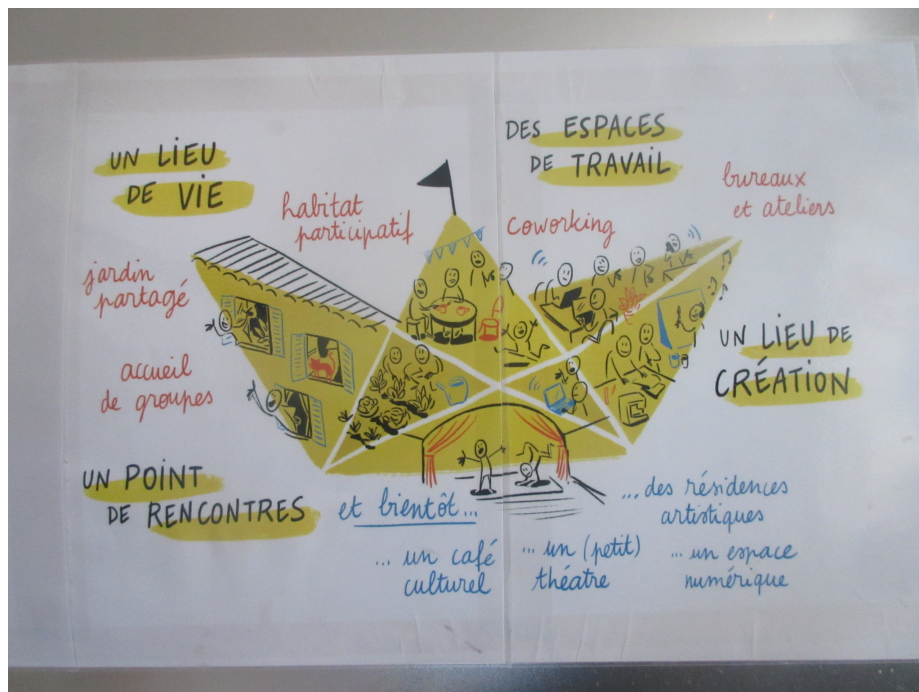 UN LIEU
DE VIE
habitat
participatif
jardin
partagé
accueil
de groupes
UN POINT
DE RENCONTRES
DES ESPACES
DE TRAVAIL
coworking
bureaux
et ateliers
UN LIEU DE
CRÉATION
et bientôt...
... un café
culturel
... un (petit)
théatre
...des résidences
artistiques
... un espace
numérique